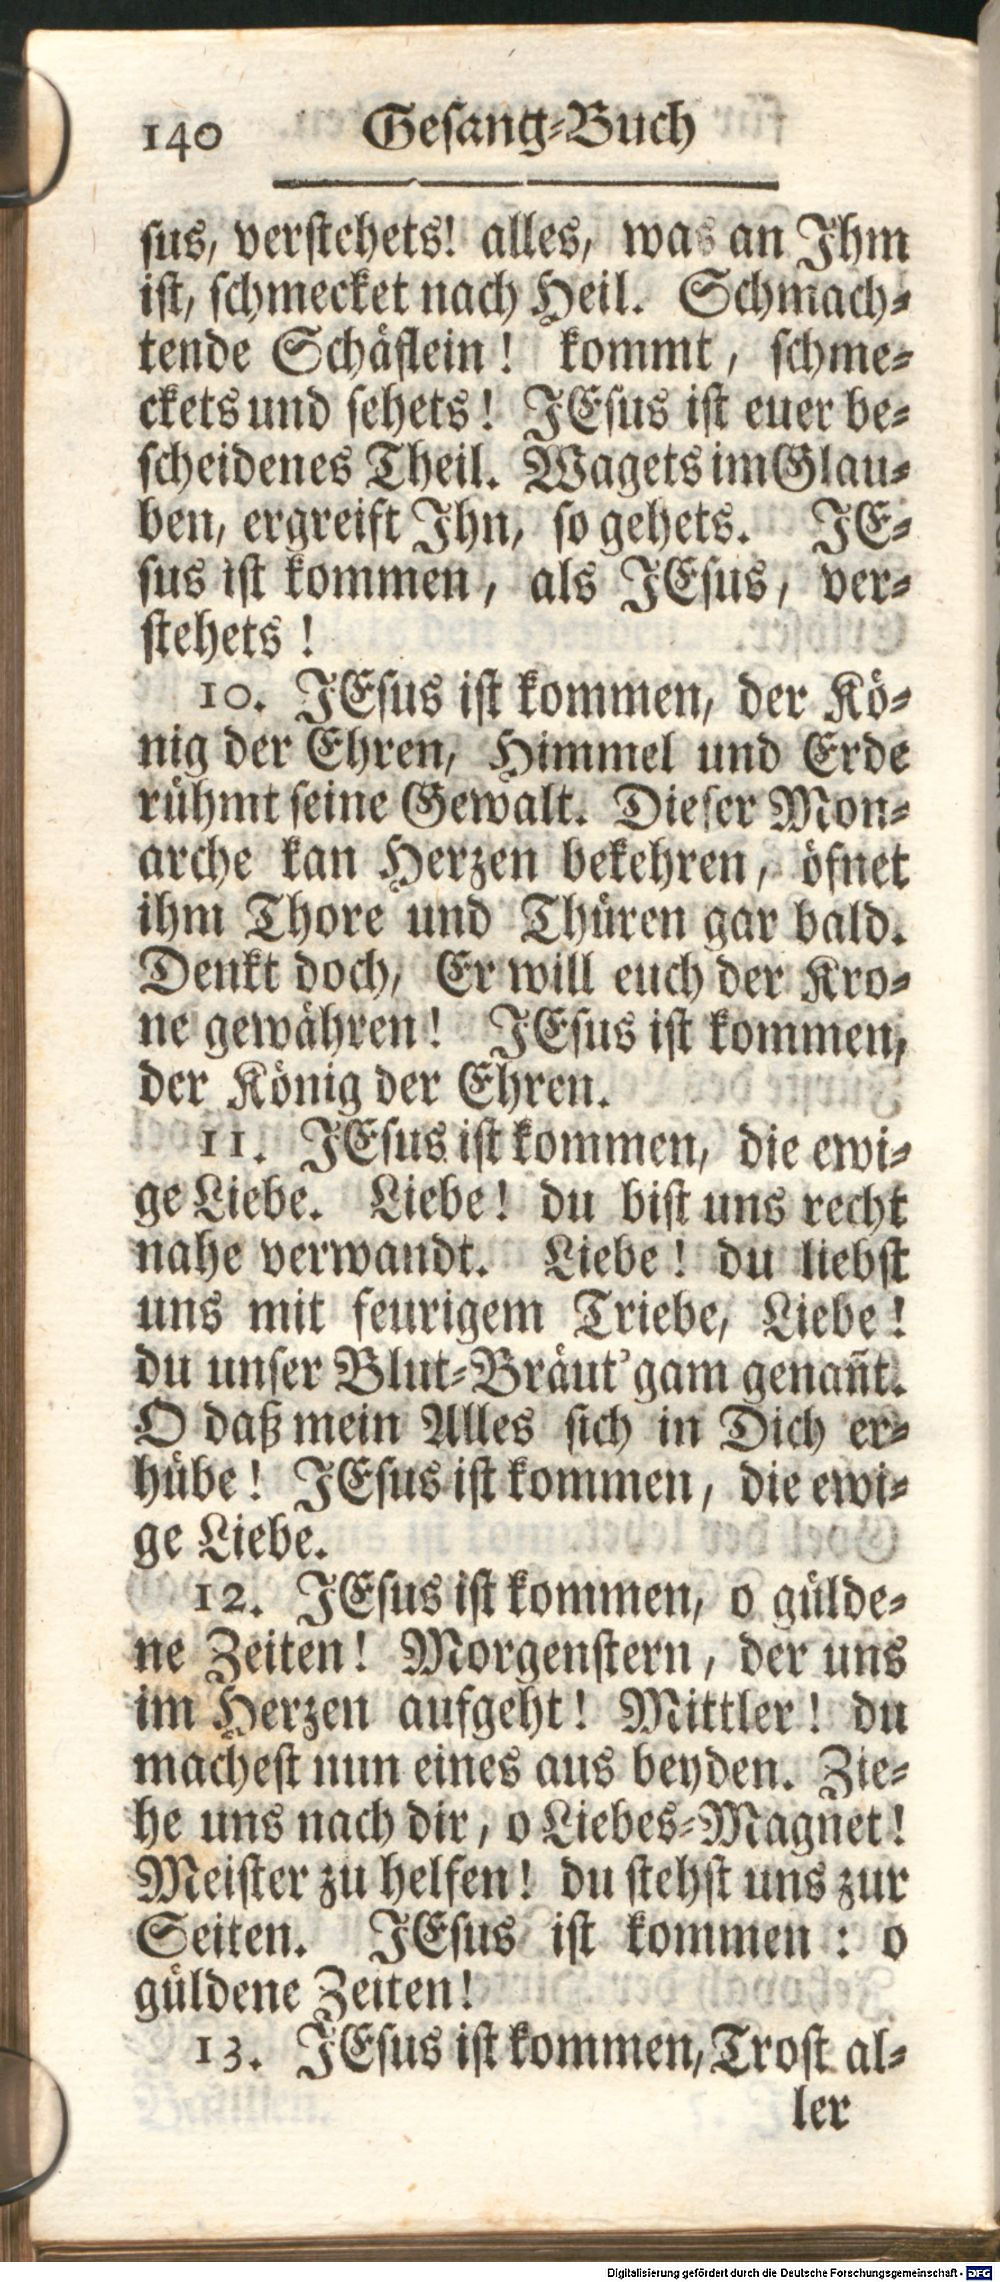 140 Gesang-Buch
sus, verstehets! alles, was an Ihm
ist, schmecket nach Heil. Schmach-
tende Schäflein! kommt, schme-
ckets und sehets! JEsus ist euer be-
scheidenes Theil. Wagets im Glau-
ben, ergreift Ihn, so gehets. JE-
sus ist kommen, als JEsus, ver-
stehets!
10. JEsus ist kommen, der Kö-
nig der Ehren, Himmel und Erde
rühmt seine Gewalt. Dieser Mon-
arche kan Herzen bekehren, öfnet
ihm Thore und Thüren gar bald.
Denkt doch, Er will euch der Kro-
ne gewähren! JEsus ist kommen,
der König der Ehren.
11. JEsus ist kommen, die ewi-
ge Liebe. Liebe! du bist uns recht
nahe verwandt. Liebe! du liebst
uns mit feurigem Triebe, Liebe!
du unser Blut-Bräut'gam genañt.
O daß mein Alles sich in Dich er-
hübe! JEsus ist kommen, die ewi-
ge Liebe.
12. JEsus ist kommen, o gülde-
ne Zeiten! Morgenstern, der uns
im Herzen aufgeht! Mittler! du
machest nun eines aus beyden. Zie-
he uns nach dir, o Liebes-Magnet!
Meister zu helfen! du stehst uns zur
Seiten. JEsus ist kommen: o
güldene Zeiten!
13. JEsus ist kommen, Trost al-
ler
Digitalisierung gefördert durch die Deutsche Forschungsgemeinschaft - DFG